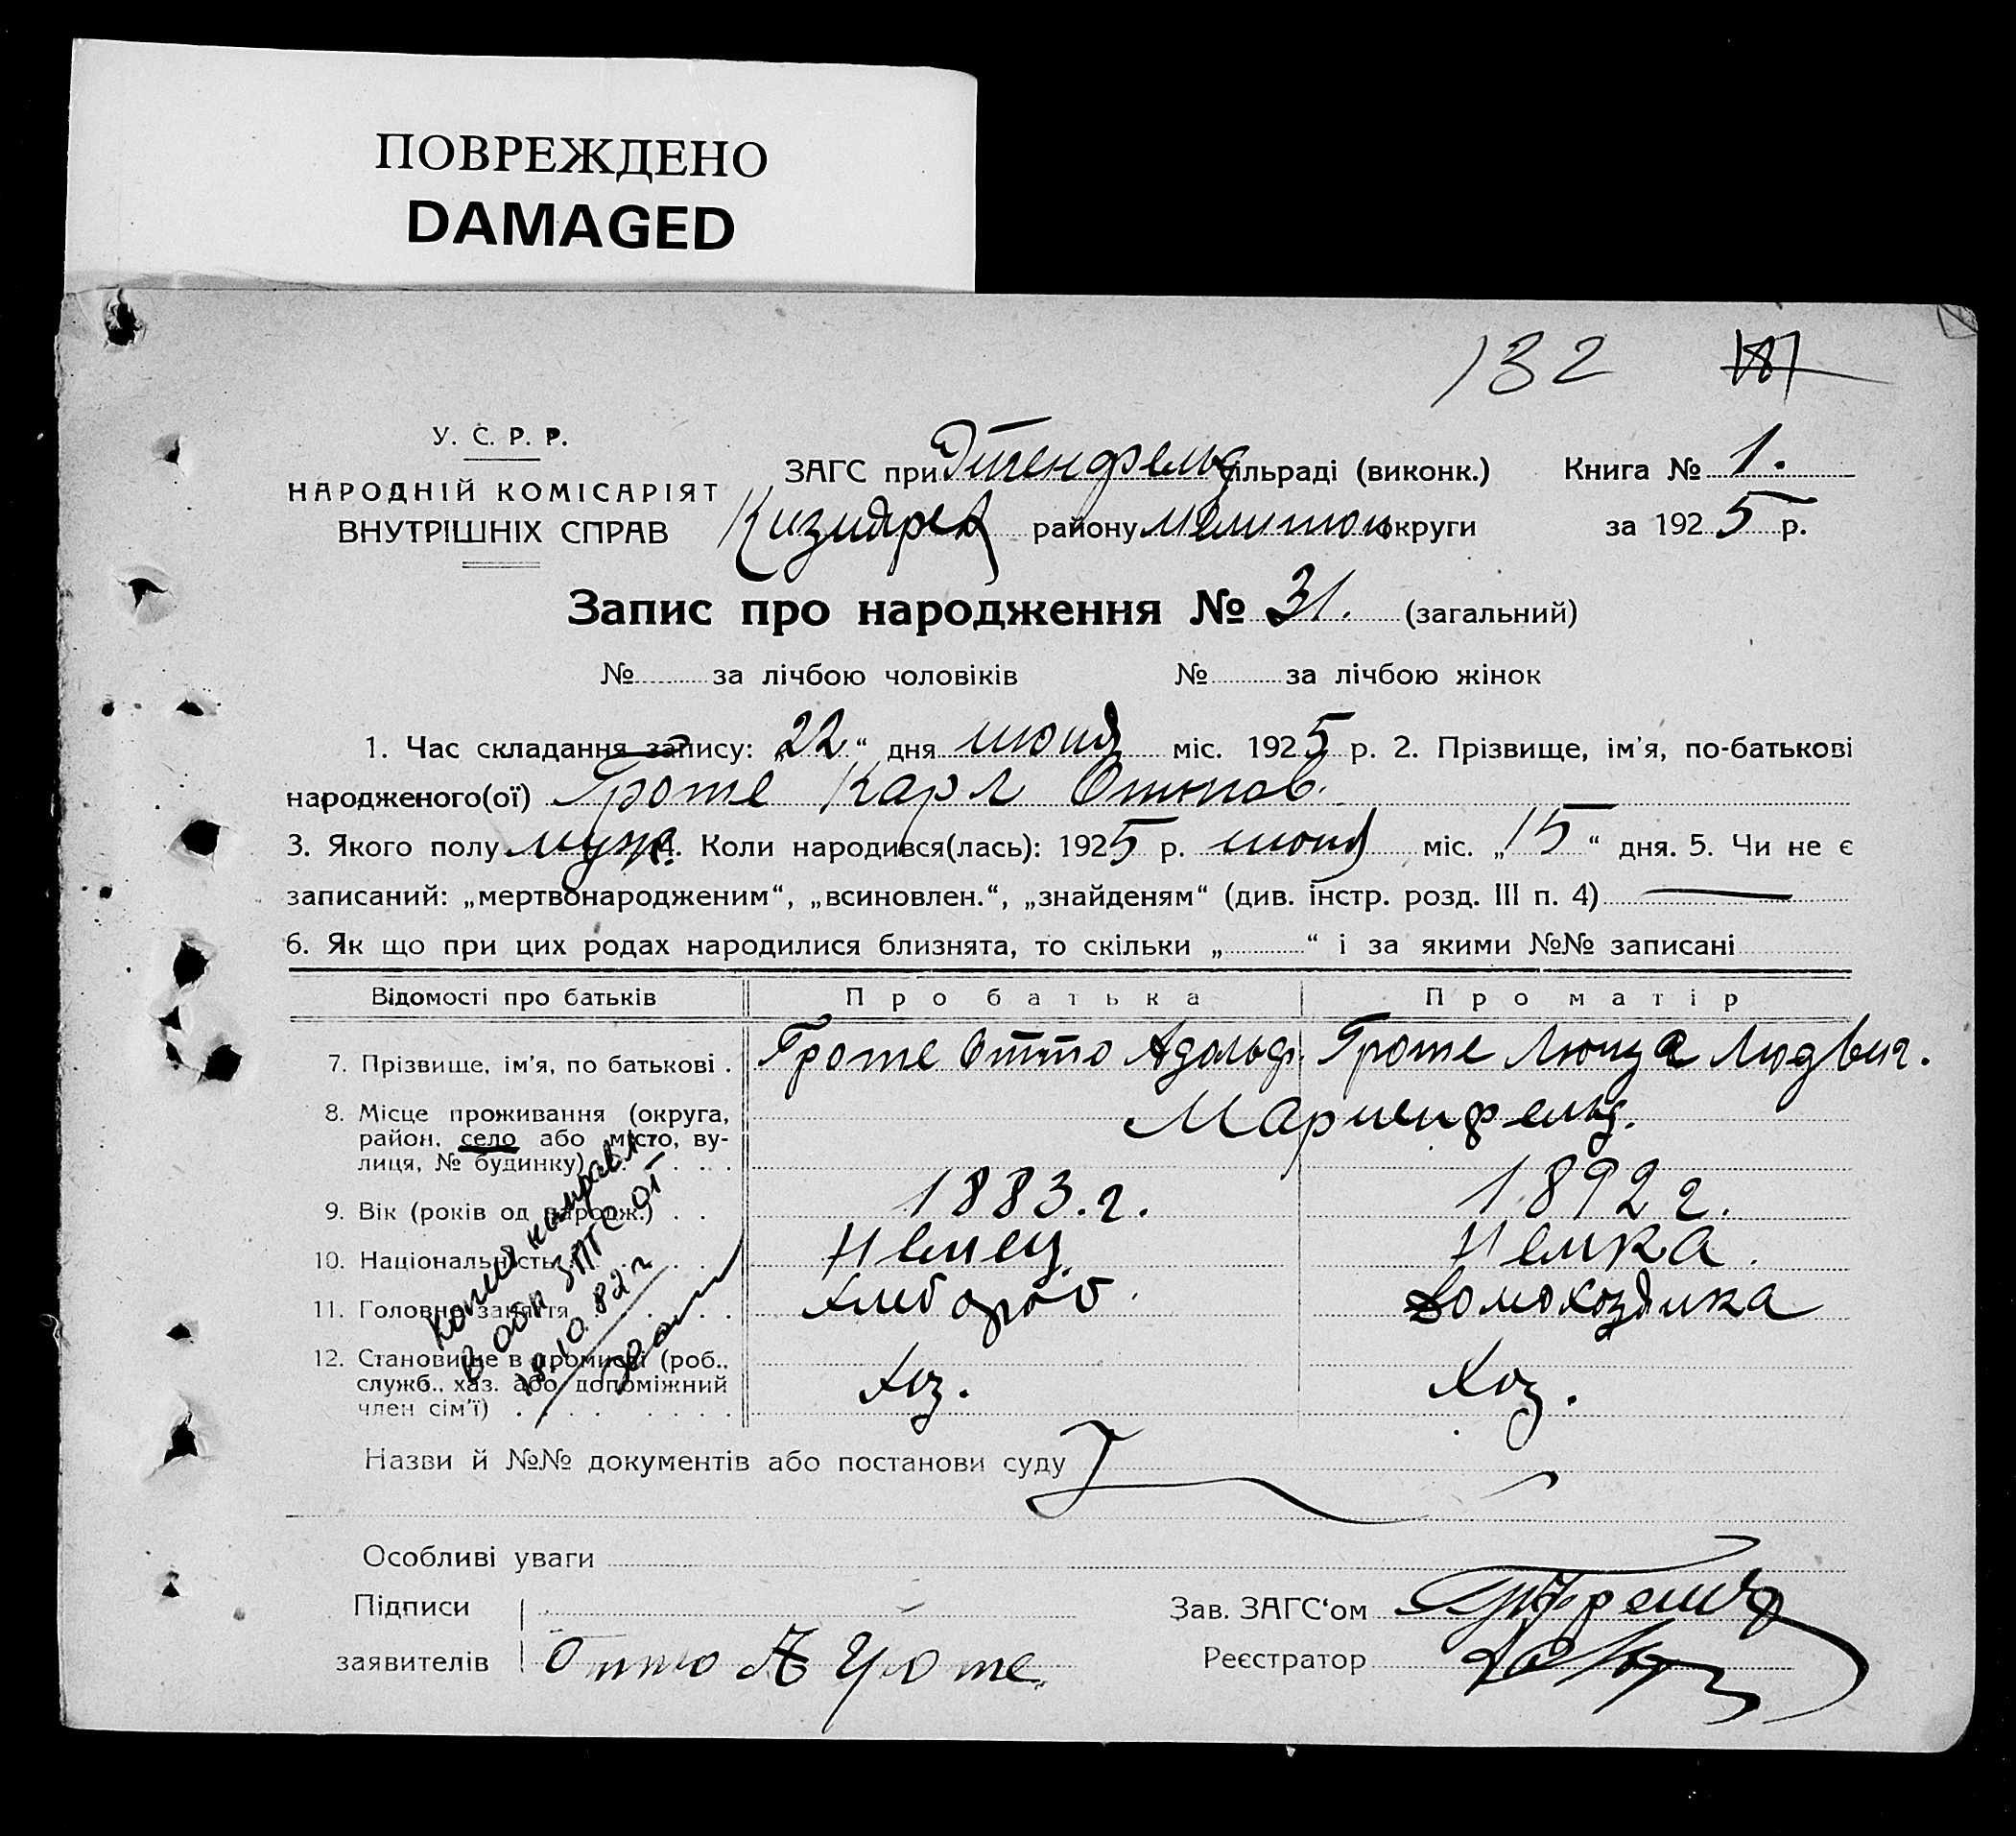 ПОВРЕЖДЕНО
DAMAGED
132 181
У. С. Р. Р.
НАРОДНІЙ КОМІСАРІЯТ
ВНУТРІШНІХ СПРАВ
ЗАГС при Этенфельд сільраді (виконк.) Книга № 1.
району Мелитоп округи за 1925 р.
Запис про народження № 31. (загальний)
№ за лічбою чоловіків № за лічбою жінок
1. Час складання запису: „22“ дня июня міс. 1925 р. 2. Прізвище, ім'я, по-батькові
народженого(ої) Гроте Карл Оттов.
3. Якого полу муж. 4. Коли народився(лась): 1925 р. июня міс. „15“ дня. 5. Чи не є
записаний: „мертвонародженим“, „всиновлен.“, „знайденям“ (див. інстр. розд. III п. 4) —
6. Як що при цих родах народилися близнята, то скільки „ “ і за якими №№ записані
Відомості про батьків Про батька Про матір
7. Прізвище, ім'я, по батькові . Гроте Отто Адольф. Гроте Люиза Людвиг.
8. Місце проживання (округа,
район, село або місто, ву-
лиця, № будинку) Мариенфельд.
9. Вік (років од народж.) . . 1883.г. 1892 г.
10. Національність Немец Немка.
11. Головне заняття Хлебороб. Домохозяйка
12. Становище в промислі (роб.,
служб., хаз. або допоміжний
член сім'ї) Хоз. Хоз.
Копия направл.
в обл ЗАГС от
18.10.82 г
Назви й №№ документів або постанови суду
Особливі уваги
Підписи
заявителів Отто А Гроте.
Зав. ЗАГС'ом
Реєстратор